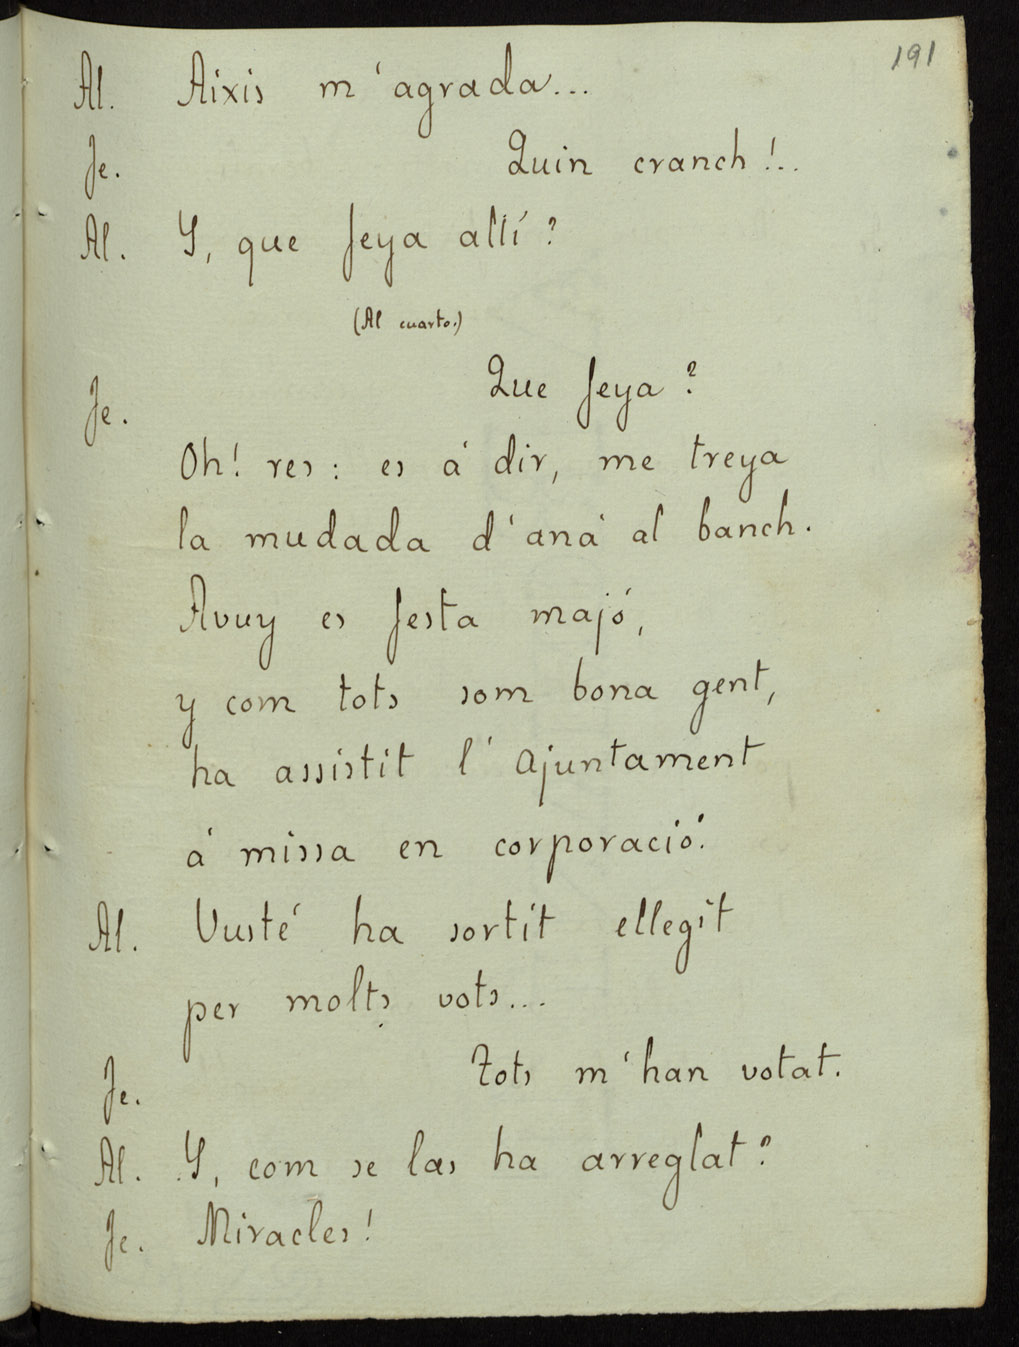 191
Al. Aixis m'agrada...
Je. Quin cranch!..
Al. Y, que feya allí?
(Al cuarto.)
Je. Que feya?
Oh! res: es á dir, me treya
la mudada d'aná al banch.
Avuy es festa majó,
y com tots som bona gent,
ha assistit l'Ajuntament
á missa en corporació.
Al. Vusté ha sortit ellegit
per molts vots...
Je. Tots m'han votat.
Al. Y, com se las ha arreglat?
Je. Miracles!